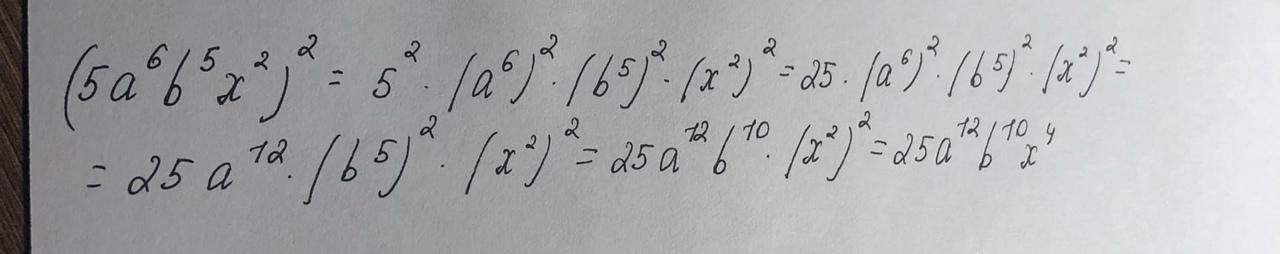 (5a⁶b⁵x²)² = 5² · (a⁶)² · (b⁵)² · (x²)² = 25 · (a⁶)² · (b⁵)² · (x²)² =
= 25a¹² · (b⁵)² · (x²)² = 25a¹²b¹⁰ · (x²)² = 25a¹²b¹⁰x⁴